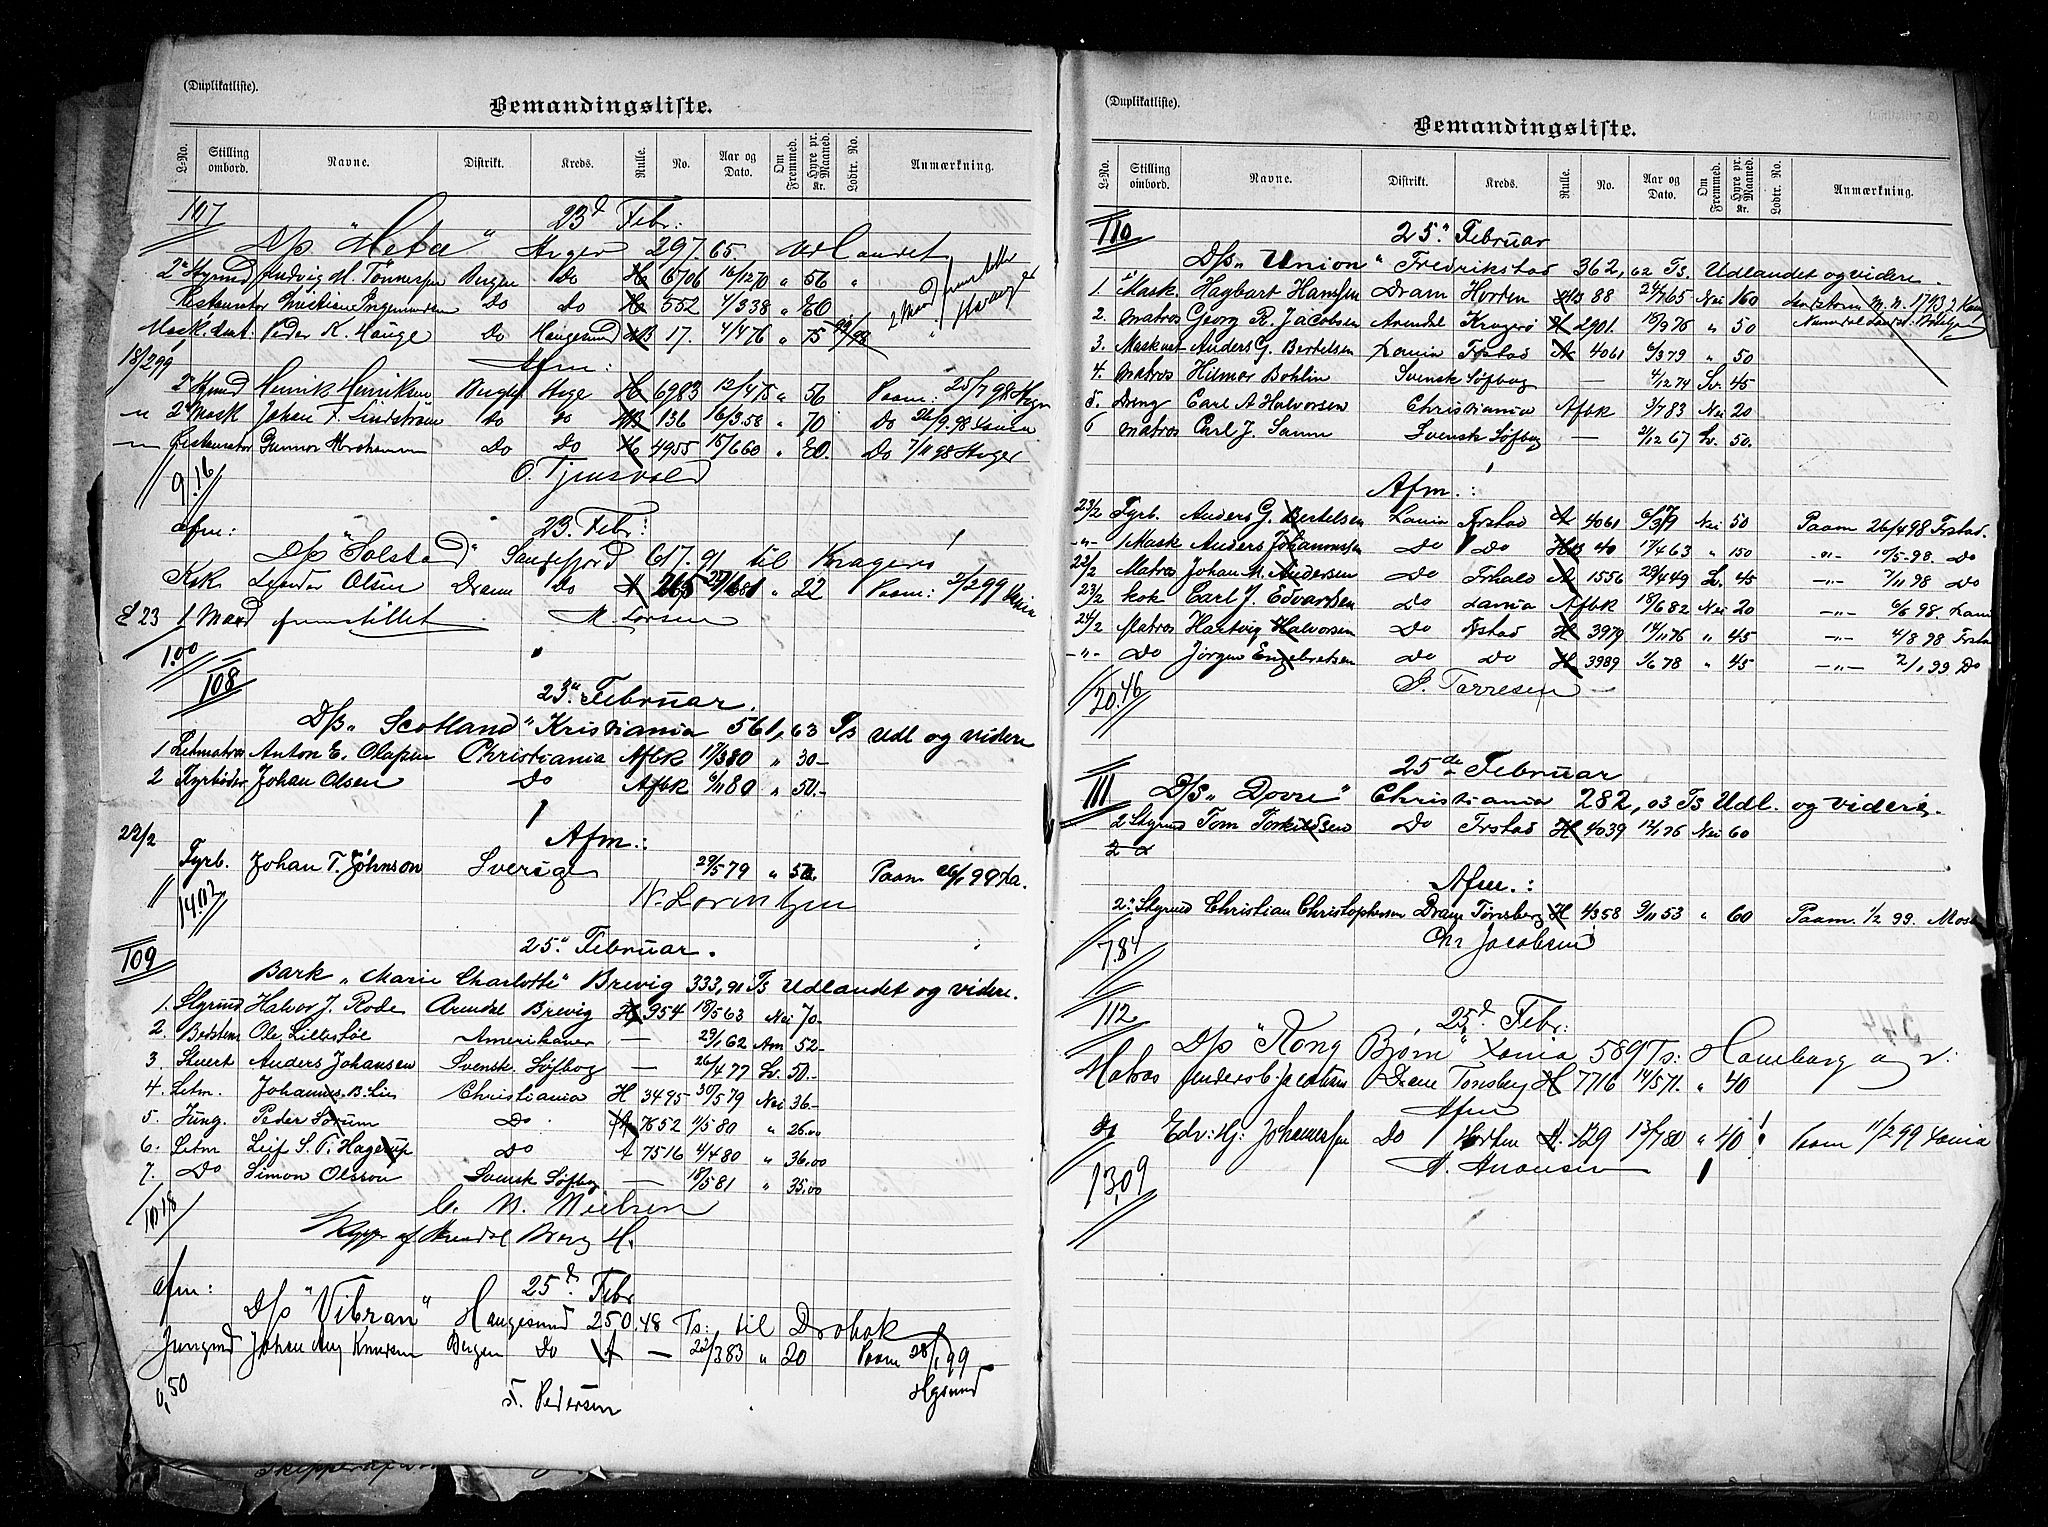 (Duplikatliste).
Bemandingsliste.
L-No. Stilling ombord. Navne. Distrikt. Kreds. Rulle. No. Aar og Dato. Om Fremmed. Hyre pr. Maaned. Kr. Lodtr. No. Anmærkning.
107 23d Febr:
D/s "Heba" 297.65 Udlandet
2d Styrmd Ludvig M. Tønnesen Bergen Do H 6706 16/12 70 " 56 "
Restauratør Kristian Do Do H 552 4/3 38 " 80
Mask. Peder K. Hauge Do Haugesund MB 17. 4/4 76 " 75
18/2 99 Afm:
2d Styrmd Henrik Henriksen H 6983 12/4 75 " 56 Paam: 25/7 98
2d Mask Johan F. Lindstrøm Do Do MB 136 16/3.58 " 70 Do 26/9.98
Restauratør Gunnar Do Do H 4955 15/6 60 " 80. Do 7/11 98
O. Tjensvold
9,16
Afm: 23. Febr:
D/s "Solstad" Sandefjord 617.91 til Kragerø
Kok Olsen Dram Do A 265 27/6 81 " 22 Paam: 2/2 99
1 Mand
M. Larsen
1.00
108
23de Februar.
D/s. "Scotland" Kristiania 561,63 Ts Udl og videre
1 Letmatros Anton E. Olafsen Christiania Afbk 11/3 80 " 30-
2 Fyrbøder Johan Olsen Do Afbk 6/11 80 " 50.-
Afm.:
22/2
Fyrb. Johan T. Johnson Sverige 29/5 79 " 50. Paam 26/1 99 Xa.
N. Lorentzen
14.03
109 25de Februar.
Bark "Marie Charlotte" Brevig 333,91 Ts Udlandet og videre.
1. Styrmd Halvor J. Rode Arendal Brevig H 954 18/5 63 Nei 70-
2. Ole Lillisøe Amerikaner — 29/1 62 Am 52-
3. Stuert Anders Johansen Svensk Søfbog — 26/4 77 Sv. 50.-
4. Letm. Johannes B. Lie Christiania H 3495 30/5 79 Nei 36.-
5. Jung. Peder Sørum Do. A 7652 11/5 80 " 26.00
6. Letm Leif S. T. Hagerup Do A 7516 4/4 80 " 36.00
7. Do Simon Olsson Svensk Søfbg — 18/5 81 " 35.00
C. N. Nielsen
10.18
Skipper af Arendal Brevg H.
Afm: 25d Febr
D/s "Vibran" Haugesund 250.48 Ts: til Drøbak
Jungmd Johan Aug Knudsen Bergen Do A — 22/3 83 " 20 Paam 28/1 99
0,50 Hgsund
T. Pedersen
(Duplikatliste).
Bemandingsliste.
L-No. Stilling ombord. Navne. Distrikt. Kreds. Rulle. No. Aar og Dato. Om Fremmed. Hyre pr. Maaned. Kr. Lodtr. No. Anmærkning.
110 25de Februar
D/s. "Union" Fredrikstad 362,62 Ts. Udlandet og videre.
1 1 Mask. Hagbart Hanssen Dram Horten MB 88 24/7 65 Nei 160
2. Matros Georg R. Jacobsen Arendal Kragerø H 2901. 18/9 76 " 50
3. Anders G. Bertelsen Xania Frstad A 4061 6/3 79 " 50
4. Matros Hilmar Bohlin Svensk Søfbog — 4/12 74 Sv. 45
5. Dreng Carl A Halvorsen Christiania Afbk 3/7 83 Nei 20
6 Matros Carl J. Samm Svensk Søfbog — 21/12 67 Sv. 50.
Afm.:
23/2 Fyrb. Anders G. Bertelsen Xania Frstad A 4061 6/3 79 Nei 50 Paam 26/4 98 Frstad.
-"- 1 Mask Anders Johannessen Do Do MB 40 17/4 63 " 150 -"- 10/5-98. Do
22/2 Matros Johan M. Andersen Do Frhald A 1556 29/4 49 " 45 -"- 7/11 98 Do
23/2 kok Carl J. Edvardsen Do Xania Afbk 18/6 82 Nei 20 -"- 6/6 98. Xania
24/2 Matros Hartvig Halvorsen Do Frstad H 3979 14/11 76 " 45 -"- 4/8 98 Frstad
-"- Do Jørgen Engebretsen Do Do H 3989 1/6 78 " 45 -"- 2/1 99 Do
S. Torresen
20.46
25de Februar
111 D/s. "Dovre" Christiania 282,03 Ts Udl. og videre.
2 Styrmd Tom Torkildsen Do Frstad H 4039 Nei 60
Afm.:
2den Styrmd Christian Christophersen Dram Tønsberg H 4358 9/11 53 " 60 Paam. 1/2 99. Moss
Chr Jacobsen
7.84
112 25d Febr:
D/s "Kong Bjørn" Xania 589 Ts: Hamburg o v:
Matros Anders C. Jacobsen Dram Tønsberg H 7716 14/5 71. " 40
Afm
Do Edv. Hj. Johannesen Do Horten A. 129 13/7 80 " 40 Paam 11/2 99 Xania
13,09